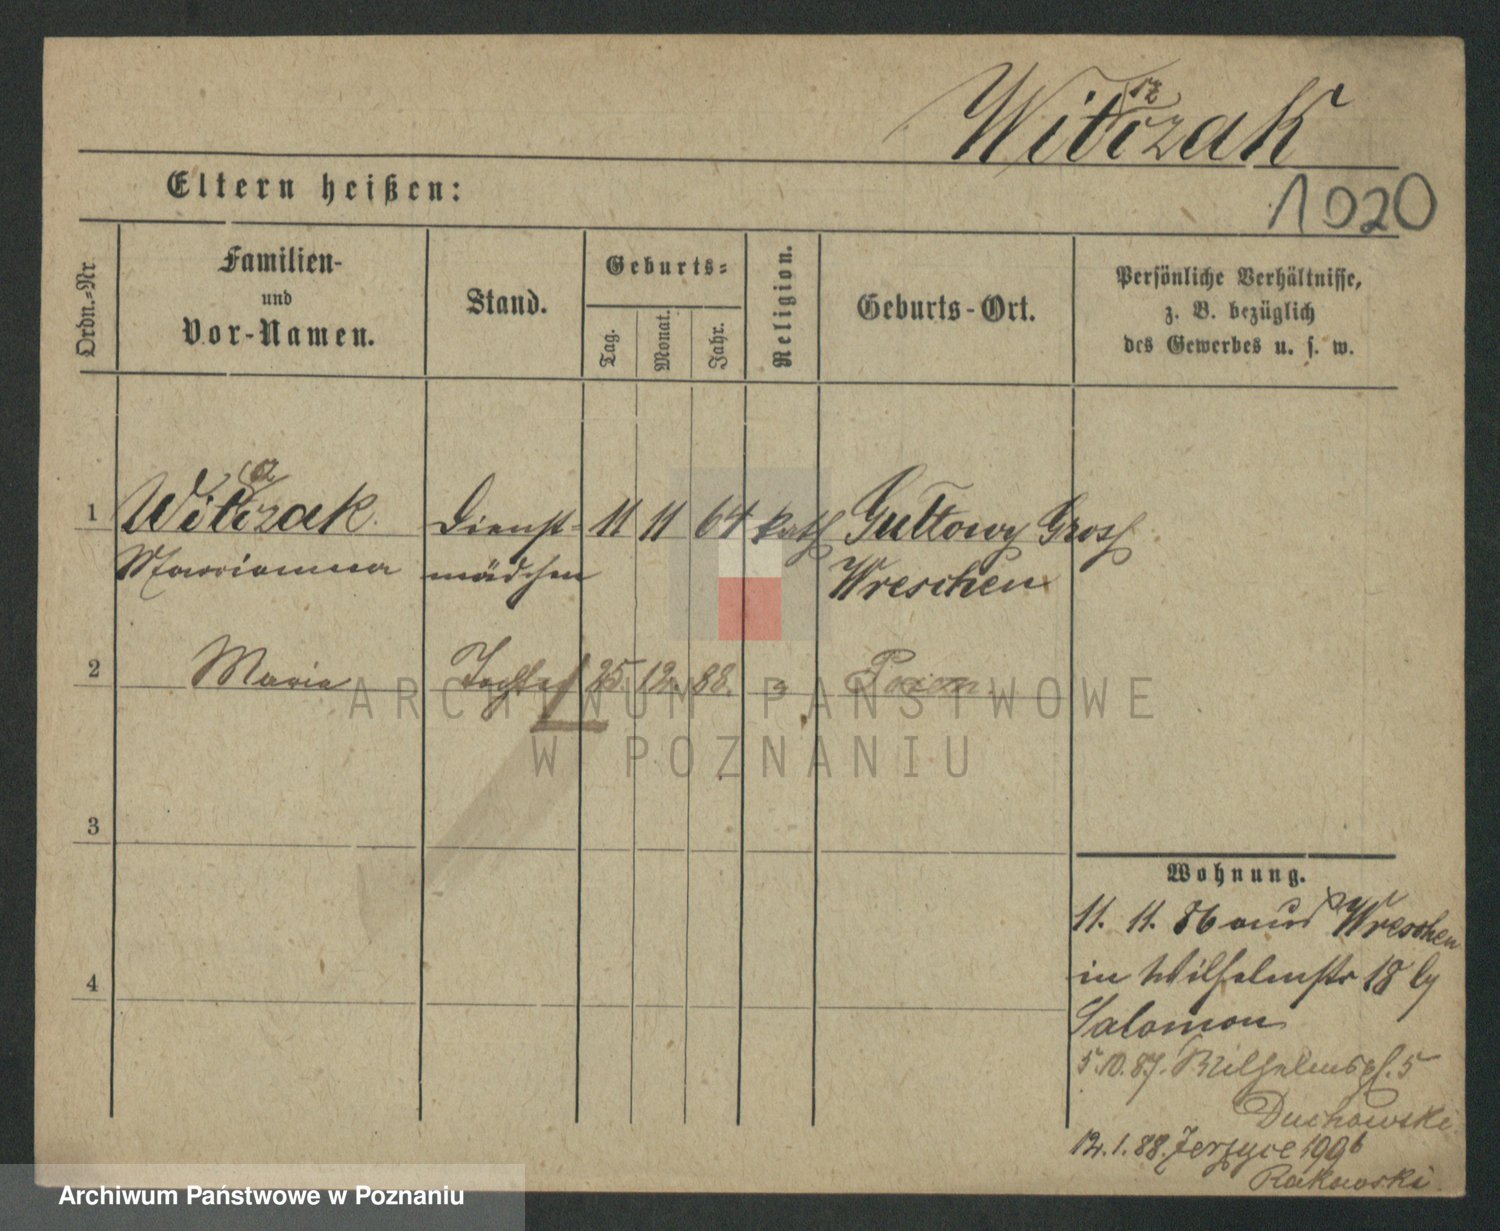 Witczak
tz
1020
Eltern heißen:
Ordn.=Nr.
Familien-
und
Vor-Namen.
Stand.
Geburts=
Tag.
Monat.
Jahr.
Religion.
Geburts-Ort.
Persönliche Verhältnisse,
z. B. bezüglich
des Gewerbes u. s. w.
1 Witczak Dienst= 11 11 64 kath Gultowy Grosh
Marianna mädchen Wreschen
2 Maria Tochter 25. 12. 88. Posen.
3
4
Wohnung.
11. 11. 86 aus Wreschen
in Wilhelmstr 18 by
Salomon
5.10.87. Wilhelmspl. 5
Duchowski
12.1.88. Jerzyce 199b
Rakowski.
ARCHIWUM PAŃSTWOWE
W POZNANIU
Archiwum Państwowe w Poznaniu